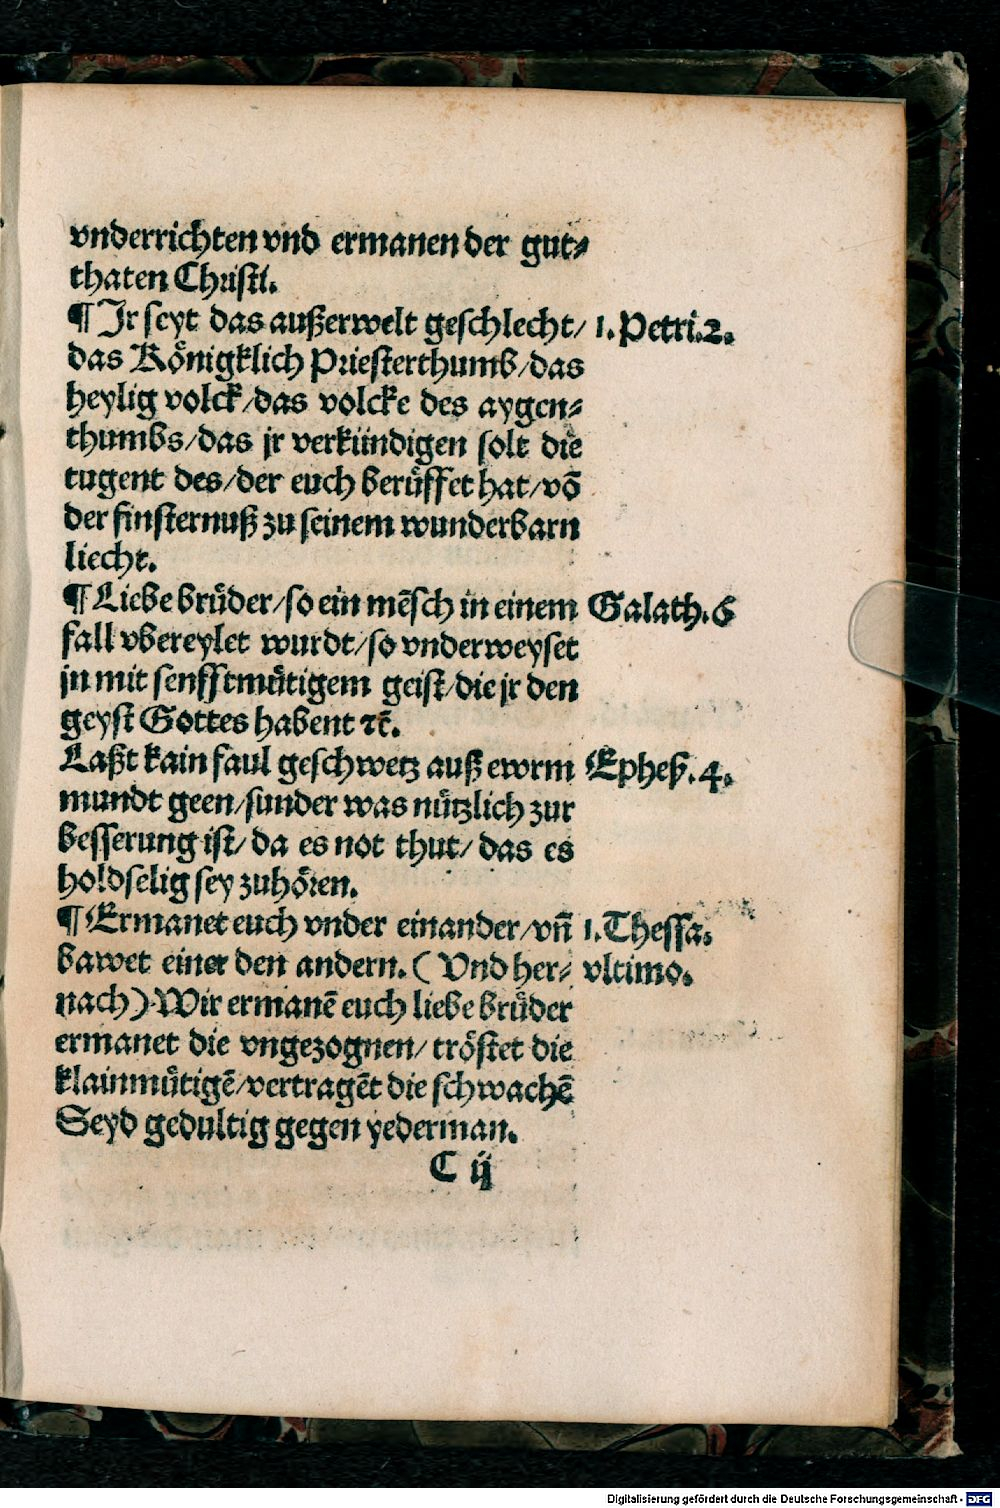 vnderrichten vnd ermanen der gut⸗
thaten Christi.
¶ Jr seyt das außerwelt geschlecht/ 1. Petri.2.
das Königklich Priesterthumb/das
heylig volck/das volcke des aygen⸗
thumbs/das jr verkündigen solt die
tugent des/der euch berüffet hat/võ
der finsternuß zu seinem wunderbarn
liecht.
¶ Liebe brůder/so ein mẽsch in einem Galath.6
fall vbereylet wurdt/so vnderweyset
jn mit senfftmůtigem geist/die jr den
geyst Gottes habent ⁊c̃.
Laßt kain faul geschwetz auß ewrm Ephes.4.
mundt geen/sunder was nützlich zur
besserung ist/ da es not thut/ das es
holdselig sey zuhören.
¶ Ermanet euch vnder einander/vñ 1. Thessa.
bawet einer den andern. ( Vnd her⸗ vltimo.
nach) Wir ermanẽ euch liebe brůder
ermanet die vngezognen/ tröstet die
klainmůtigẽ/vertragẽt die schwachẽ
Seyd gedultig gegen yederman.
C ij
Digitalisierung gefördert durch die Deutsche Forschungsgemeinschaft - DFG